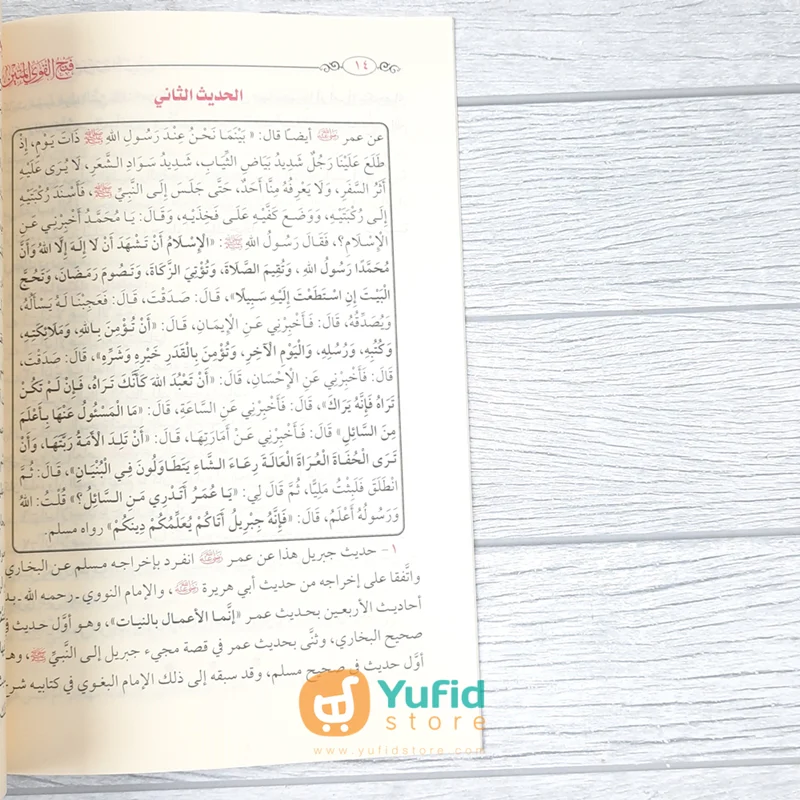 فتح القوي المتين
١٤
الحديث الثاني
عن عمر رضي الله عنه أيضًا قال: « بَيْنَمَا نَحْنُ عِنْدَ رَسُولِ اللهِ ﷺ ذَاتَ يَوْمٍ، إِذْ
طَلَعَ عَلَيْنَا رَجُلٌ شَدِيدُ بَيَاضِ الثِّيَابِ، شَدِيدُ سَوَادِ الشَّعَرِ، لَا يُرَى عَلَيْهِ
أَثَرُ السَّفَرِ، وَلَا يَعْرِفُهُ مِنَّا أَحَدٌ، حَتَّى جَلَسَ إِلَى النَّبِيِّ ﷺ، فَأَسْنَدَ رُكْبَتَيْهِ
إِلَى رُكْبَتَيْهِ، وَوَضَعَ كَفَّيْهِ عَلَى فَخِذَيْهِ، وَقَالَ: يَا مُحَمَّدُ أَخْبِرْنِي عَنِ
الْإِسْلَامِ؟، فَقَالَ رَسُولُ اللهِ ﷺ: «الْإِسْلَامُ أَنْ تَشْهَدَ أَنْ لَا إِلَهَ إِلَّا اللهُ وَأَنَّ
مُحَمَّدًا رَسُولُ اللهِ، وَتُقِيمَ الصَّلَاةَ، وَتُؤْتِيَ الزَّكَاةَ، وَتَصُومَ رَمَضَانَ، وَتَحُجَّ
الْبَيْتَ إِنِ اسْتَطَعْتَ إِلَيْهِ سَبِيلًا»، قَالَ: صَدَقْتَ، قَالَ: فَعَجِبْنَا لَهُ يَسْأَلُهُ
وَيُصَدِّقُهُ، قَالَ: فَأَخْبِرْنِي عَنِ الْإِيمَانِ، قَالَ: «أَنْ تُؤْمِنَ بِاللهِ، وَمَلَائِكَتِهِ،
وَكُتُبِهِ، وَرُسُلِهِ، وَالْيَوْمِ الْآخِرِ، وَتُؤْمِنَ بِالْقَدَرِ خَيْرِهِ وَشَرِّهِ»، قَالَ: صَدَقْتَ،
قَالَ: فَأَخْبِرْنِي عَنِ الْإِحْسَانِ، قَالَ: «أَنْ تَعْبُدَ اللهَ كَأَنَّكَ تَرَاهُ، فَإِنْ لَمْ تَكُنْ
تَرَاهُ فَإِنَّهُ يَرَاكَ»، قَالَ: فَأَخْبِرْنِي عَنِ السَّاعَةِ، قَالَ: «مَا الْمَسْئُولُ عَنْهَا بِأَعْلَمَ
مِنَ السَّائِلِ» قَالَ: فَأَخْبِرْنِي عَنْ أَمَارَتِهَا، قَالَ: «أَنْ تَلِدَ الْأَمَةُ رَبَّتَهَا، وَأَنْ
تَرَى الْحُفَاةَ الْعُرَاةَ الْعَالَةَ رِعَاءَ الشَّاءِ يَتَطَاوَلُونَ فِي الْبُنْيَانِ»، قَالَ: ثُمَّ
انْطَلَقَ فَلَبِثْتُ مَلِيًّا، ثُمَّ قَالَ لِي: «يَا عُمَرُ أَتَدْرِي مَنِ السَّائِلُ؟» قُلْتُ: اللهُ
وَرَسُولُهُ أَعْلَمُ، قَالَ: «فَإِنَّهُ جِبْرِيلُ أَتَاكُمْ يُعَلِّمُكُمْ دِينَكُمْ» رواه مسلم.
١- حديث جبريل هذا عن عمر رضي الله عنه انفرد بإخراجه مسلم عن البخاري
واتَّفقا على إخراجه من حديث أبي هريرة رضي الله عنه، والإمام النووي ـ رحمه الله ـ
أحاديث الأربعين بحديث عمر «إنَّما الأعمال بالنيات»، وهو أوَّل حديث في
صحيح البخاري، وثنَّى بحديث عمر في قصة مجيء جبريل إلى النَّبيِّ ﷺ،
أوَّل حديث في صحيح مسلم، وقد سبقه إلى ذلك الإمام البغوي في كتابيه شرح
Yufid
store
www.yufidstore.com